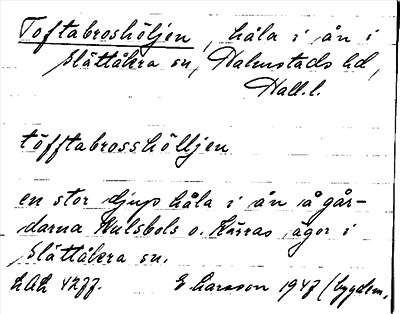 Toftabroshöljen, håla i ån i
Slättåkra sn, Halmstads hd,
Hall.l.
töfftabrosshölljen
en stor djup håla i ån å går-
darna Hulsbols o. Kärras ägor i
Slättåkra sn.
LAL 4277. E Larsson 1947 (bygdem.